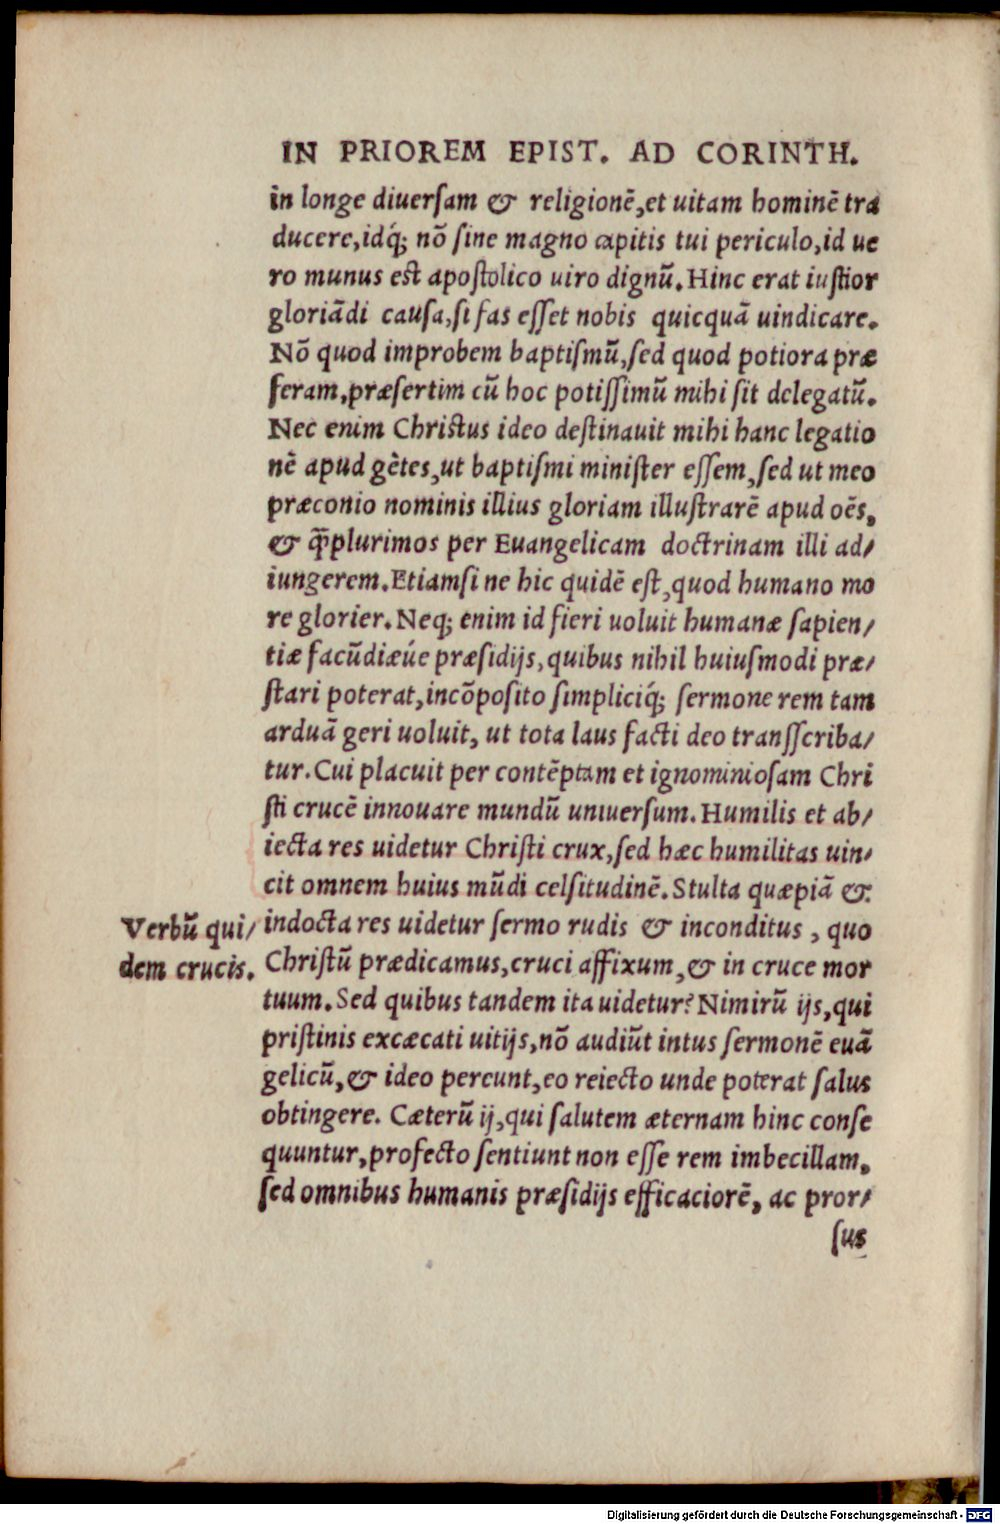 IN PRIOREM EPIST. AD CORINTH.
in longe diuersam & religionē, et uitam hominē tra
ducere, idq́; nō sine magno capitis tui periculo, id ue
ro munus est apostolico uiro dignū. Hinc erat iustior
gloriādi causa, si fas esset nobis quicquā uindicare.
Nō quod improbem baptismū, sed quod potiora præ
feram, præsertim cū hoc potissimū mihi sit delegatū.
Nec enim Christus ideo destinauit mihi hanc legatio
nē apud gētes, ut baptismi minister essem, sed ut meo
præconio nominis illius gloriam illustrarē apud oēs,
& q̄plurimos per Euangelicam doctrinam illi ad/
iungerem. Etiamsi ne hic quidē est, quod humano mo
re glorier. Neq; enim id fieri uoluit humanæ sapien/
tiæ facūdiæúe præsidijs, quibus nihil huiusmodi præ/
stari poterat, incōposito simpliciq́; sermone rem tam
arduā geri uoluit, ut tota laus facti deo transscriba/
tur. Cui placuit per contēptam et ignominiosam Chri
sti crucē innouare mundū uniuersum. Humilis et ab/
iecta res uidetur Christi crux, sed hæc humilitas uin/
cit omnem huius mūdi celsitudinē. Stulta quæpiā &
Verbū qui/ indocta res uidetur sermo rudis & inconditus, quo
dem crucis. Christū prædicamus, cruci affixum, & in cruce mor
tuum. Sed quibus tandem ita uidetur? Nimirū ijs, qui
pristinis excæcati uitijs, nō audiūt intus sermonē euā
gelicū, & ideo pereunt, eo reiecto unde poterat salus
obtingere. Cæterū ij, qui salutem æternam hinc conse
quuntur, profecto sentiunt non esse rem imbecillam,
sed omnibus humanis præsidijs efficaciorē, ac pror/
sus
Digitalisierung gefördert durch die Deutsche Forschungsgemeinschaft - DFG